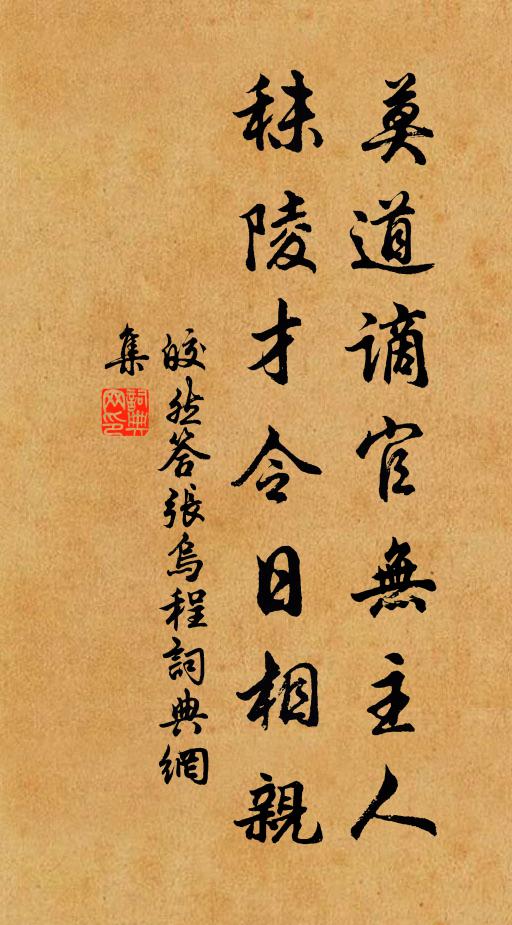 莫道謫官無主人
秣陵才令日相親
皎然答張烏程詞典網
集
詞典
网印